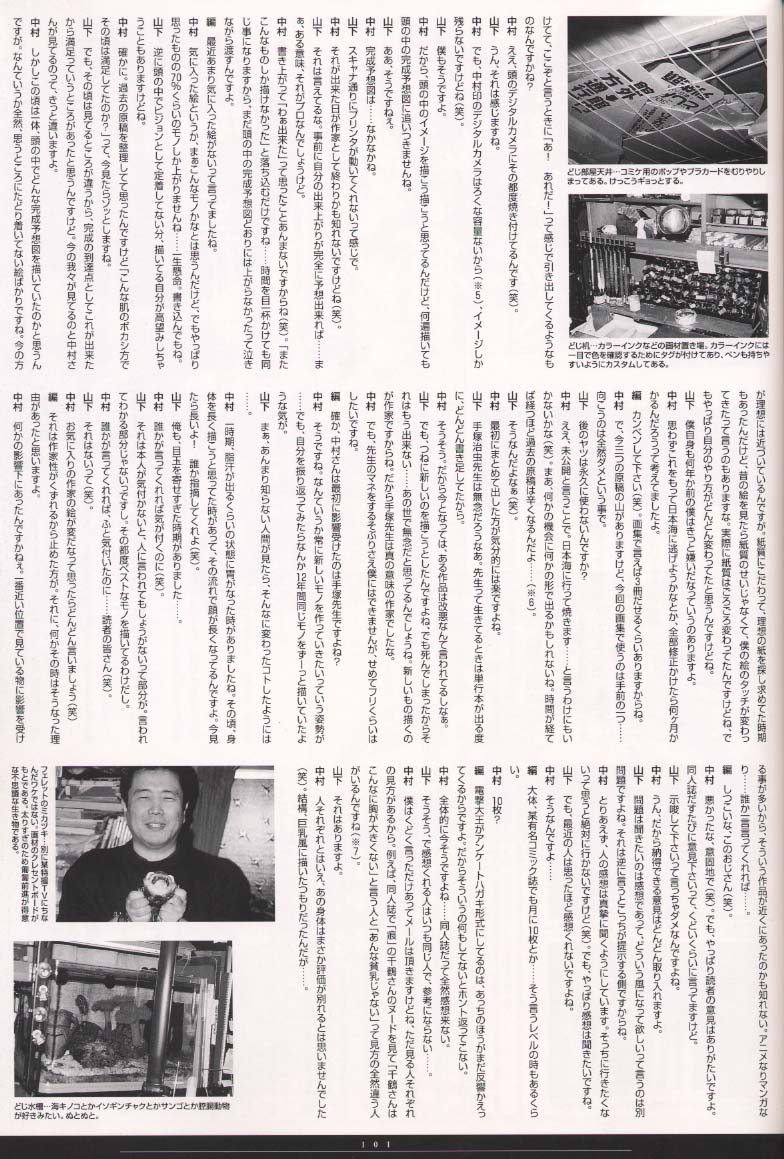 けてて、ここぞと言うときに「あ！　あれだ！」って感じで引き出してくるようなも
のなんですかね？
中村　ええ、頭のデジタルカメラにその都度焼き付けてるんです（笑）。
山下　うん、それは感じますね。
中村　でも、中村印のデジタルカメラはろくな容量ないから（※5）、イメージしか
残らないですけどね（笑）。
山下　僕もそうですよ。
中村　だから、頭の中のイメージを描こう描こうと思ってるんだけど、何遍描いても
頭の中の完成予想図に追いつきませんね。
山下　ああ、そうですねぇ。
中村　完成予想図は……なかなかね。
山下　スキャナ通りにプリンタが動いてくれないって感じで。
中村　それが出来た日が作家として終わりかも知れないですけどね（笑）。
山下　それは言えてるな。事前に自分の出来上がりが完全に予想出来れば……ま
ぁ、ある意味、それがプロなんでしょうけど。
中村　書き上がって「わぁ出来た」って思ったことあんまないですからね（笑）。「また
こんなものしか描けなかった」と落ち込むだけですね……時間を目一杯かけても同
じ事になりますから、まだ頭の中の完成予想図どおりには上がらなかったって泣き
ながら渡すんですよ。
編　最近あまり気に入った絵がないって言ってましたね。
中村　気に入った絵というか、まぁこんなモノかなとは思うんだけど、でもやっぱり
思ったものの70％くらいのモノしか上がりませんね……一生懸命。書き込んでもね。
山下　逆に頭の中でビジョンとして定着してない分、描いてる自分が高望みしちゃ
うこともありますけどね。
中村　確かに。過去の原稿を整理してて思ったんですけど「こんな肌のボカシ方で
その頃は満足してたのか？」って、今見たらゾッとしますね。
山下　でも、その頃は見てるところが違うから、完成の到達点としてこれが出来た
から満足っていうところがあったと思うんですけど。今の我々が見てるのと中村さ
んが見てるのって、きっと違いますよ。
中村　しかしこの頃は一体、頭の中でどんな完成予想図を描いていたのかと思うん
ですが。なんていうか全然、思うところにたどり着いてない絵ばかりですね。今の方
どじ部屋天井…コミケ用のポップやプラカードをむりやりし
まってある。けっこうギョっとする。
どじ机…カラーインクなどの画材置き場。カラーインクには
一目で色を確認するためにタグが付けてあり、ペンも持ちや
すいようにカスタムしてある。
が理想には近づいているんですが。紙質にこだわって、理想の紙を探し求めてた時期
もあったんだけど、昔の絵を見たら紙質のせいじゃなくて、僕の絵のタッチが変わっ
てきたって言うのもありますな。実際に紙質はころころ変わってたんですけどね、で
もやっぱり自分のやり方がどんどん変わってたと思うんですけどね。
山下　僕自身も何年か前の僕はきっと嫌いだなっていうのありますよ。
中村　思わずこれをもって日本海に逃げようかなとか、全部修正かけたら何ヶ月か
かるんだろうって考えてましたよ。
編　カンベンして下さい（笑）。画集で言えば3冊だせるくらいありますからね。
中村　で、今三つの原稿の山がありますけど、今回の画集で使うのは手前の一つ……
向こうのは全然ダメという事で。
山下　後のヤツは永久に使わないんですか？
中村　ええ、未公開と言うことで。日本海に行って焼きます……と言うわけにもい
かないかな（笑）。まあ、何かの機会に何かの形で出るかもしれないね。時間が経て
ば経つほど過去の原稿は辛くなるんだよ……（※6）。
山下　そうなんだよなぁ（笑）。
中村　最初にまとめて出した方が気分的には楽ですよね。
山下　手塚治虫先生は無念だろうなあ。先生って生きてるときは単行本が出る度
に、どんどん書き足してたから。
中村　そうそう、だから今となっては、ある作品は改悪なんて言われてるしなぁ。
山下　でも、つねに新しいのを描こうとしたんですよね、でも死んでしまったからそ
れはもう出来ない……あの世で無念だと思ってるんでしょうね。新しいもの描くの
が作家ですからね。だから手塚先生は真の意味の作家でしたな。
中村　でも、先生のマネをするそぶりさえ僕にはできませんが、せめてフリくらいは
したいですね。
編　確か、中村さんは最初に影響受けたのは手塚先生ですよね？
中村　そうですね。なんていうか常に新しいモノを作っていきたいっていう姿勢が
……でも、自分を振り返ってみたらなんか12年間同じモノをずーっと描いていたよ
うな気が。
山下　まぁ、あんまり知らない人間が見たら、そんなに変わったコトしたようには
……。
中村　一時期、脂汁が出るくらいの状態に胃がなった時がありましたね。その頃、身
体を長く描こうと思ってた時があって、その流れで顔が長くなってるんですよ。今見
たら長いよ！　誰か指摘してくれよ（笑）。
山下　俺も、目玉を寄せすぎた時期がありました……。
中村　誰かが言ってくれれば気が付くのに（笑）。
山下　それは本人が気付かないと、人に言われてもしょうがないって部分が。言われ
てわかる部分じゃないですし。その都度ベストなモノを描いてるわけだし。
中村　誰かが言ってくれれば、ふと気付いたのに……読者の皆さん（笑）。
山下　それはないって（笑）。
中村　お気に入りの作家の絵が変だなって思ったらどんどん言いましょう（笑）
編　それは作家性がくずれるから止めた方が。それに、何かその時はそうなった理
由があったと思いますよ。
中村　何かの影響下にあったんですかねぇ。一番近い位置で見ている物に影響を受け
る事が多いから、そういう作品が近くにあったのかも知れない。アニメなりマンガな
り……誰か一言言ってくれれば……。
編　しつこいな、このおじさん（笑）。
中村　悪かったな、意固地で（笑）。でも、やっぱり読者の意見はありがたいですよ。
同人誌だすたびに意見下さいって、くどいくらいに言ってますけど。
山下　示唆して下さいって言っちゃダメなんですよね。
中村　うん、だから納得できる意見はどんどん取り入れますよ。
山下　問題は聞きたいのは感想であって、どういう風になって欲しいって言うのは別
問題ですよね。それは逆に言うとこっちが提示する側ですからね。
中村　とりあえず、人の感想は真摯に聞くようにしています。そっちに行きたくな
いって思うと絶対に行かないですけど（笑）。でも、やっぱり感想は聞きたいですね。
山下　でも、最近の人は思ったほど感想くれないですよね。
中村　そうなんですよ……
編　大体、某有名コミック誌でも月に10枚とか……そう言うレベルの時もあるくら
い。
中村　10枚？
編　電撃大王がアンケートハガキ形式にしてるのは、あっちのほうがまだ反響かえっ
てくるからですよ。だからそういうの何もしてないとホント返ってこない。
中村　全体的に今そうですよね……同人誌だって全然感想来ない。
山下　そうそう、で感想くれる人はいつも同じ人で、参考にならない……。
中村　僕はくどく言っただけあってメールは頂きますけどね、ただ見る人それぞれ
の見方があるから。例えば、同人誌で「痕」の千鶴さんのヌードを見て「千鶴さんは
こんなに胸が大きくない」と言う人と「あんな貧乳じゃない」って見方の全然違う人
がいるんですね（※7）。
山下　それはありますよ。
中村　人それぞれとはいえ、あの身体はまさか評価が別れるとは思いませんでした
（笑）。結構、巨乳風に描いたつもりだったんだが……。
フェレットのミカヅキ…別に某特撮ＴＶにちな
んだワケではない。画材のクレセントボードが
もとである。太りすぎのため匍匐前進が得意
な不思議な生き物である。
どじ水槽…海キノコとかイソギンチャクとかサンゴとか腔腸動物
が好きみたい。ぬとぬと。
101